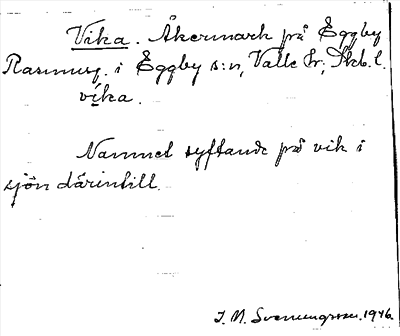 Vika. Åkermark på Eggby
Rasmusg. i Eggby s:n, Valle hr, Skb. l.
vika.
Namnet syftande på vik i
sjön därintill.
J. M. Svennungsson. 1946.